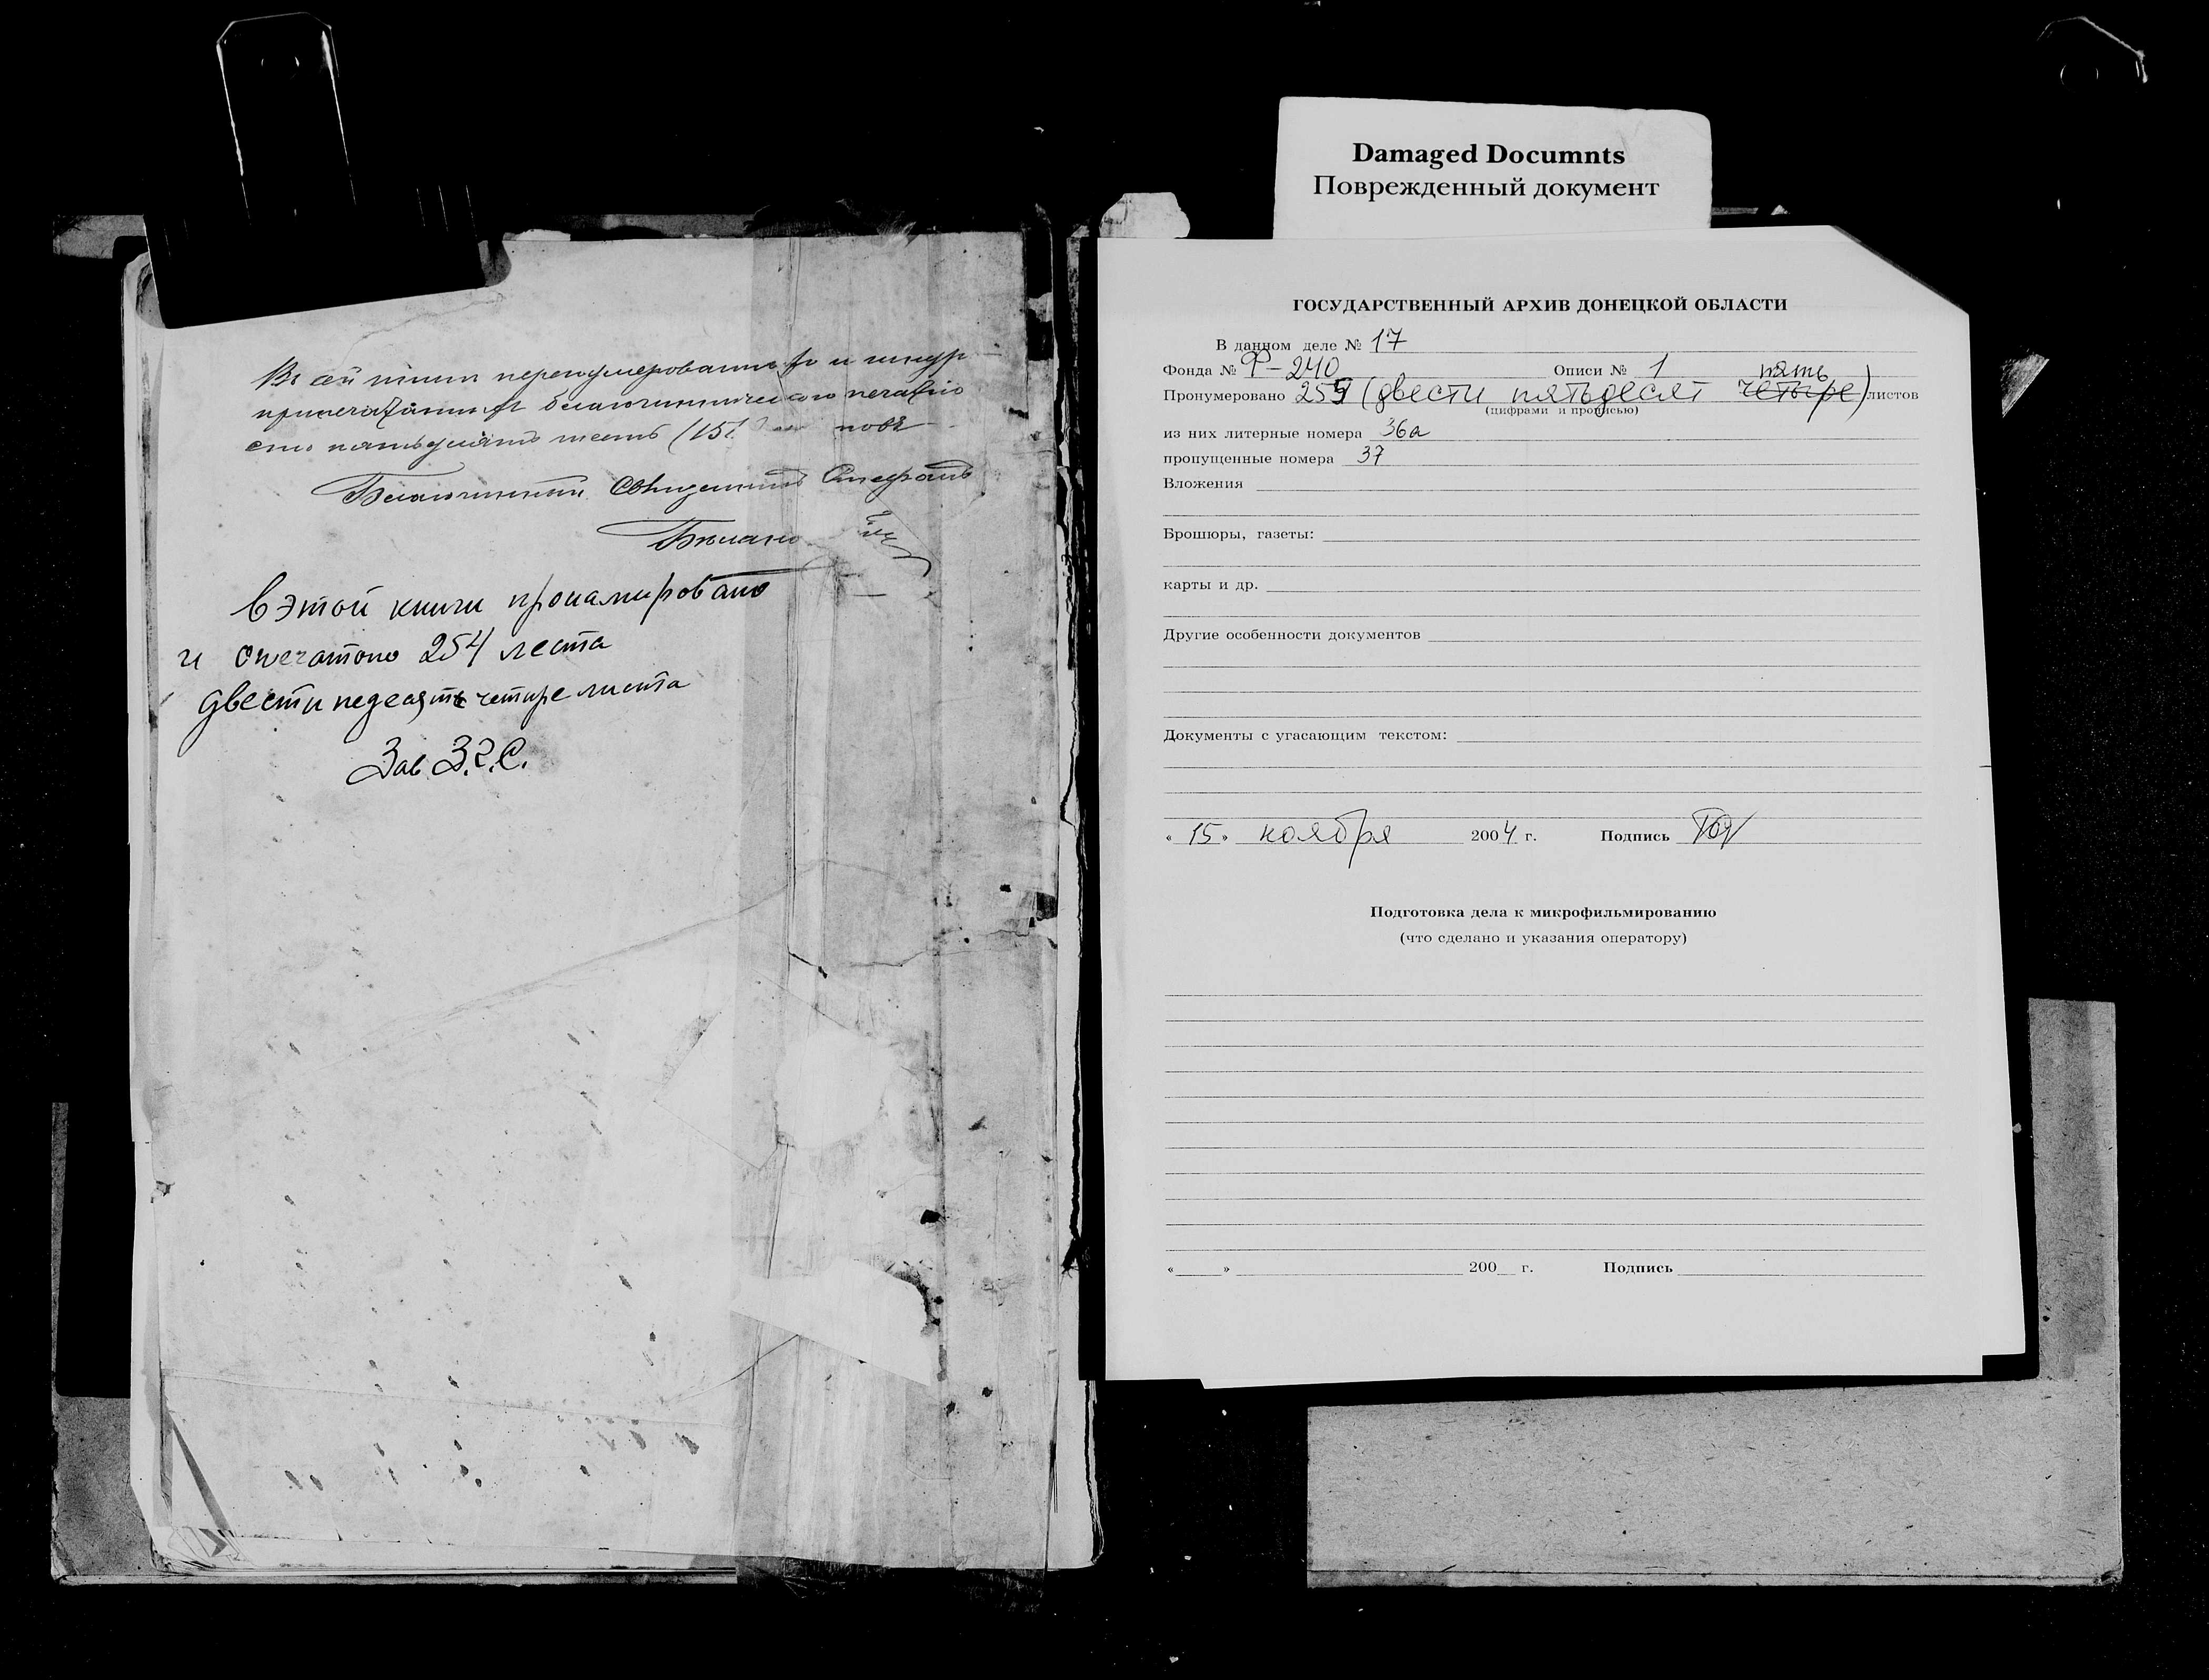 Damaged Documnts
Поврежденный документ
Въ сей книги перенумерованныхъ и шнур
припечатанныхъ благочинническою печатью
сто пятьдесятъ шесть (15
Благочинный Священникъ Стефанъ
в этой книги
и опечатоно 254 леста
двести педесять четире листа
Зав. З.Г.С.
ГОСУДАРСТВЕННЫЙ АРХИВ ДОНЕЦКОЙ ОБЛАСТИ
В данном деле № 17
Фонда № Ф-240 Описи № 1 пять
Пронумеровано 255 (двести пятьдесят четыре) листов
(цифрами и прописью)
из них литерные номера 36а
пропущенные номера 37
Вложения
Брошюры, газеты:
карты и др.
Другие особенности документов
Документы с угасающим текстом:
« 15 » ноября 2004 г. Подпись
Подготовка дела к микрофильмированию
(что сделано и указания оператору)
« » 200 г. Подпись